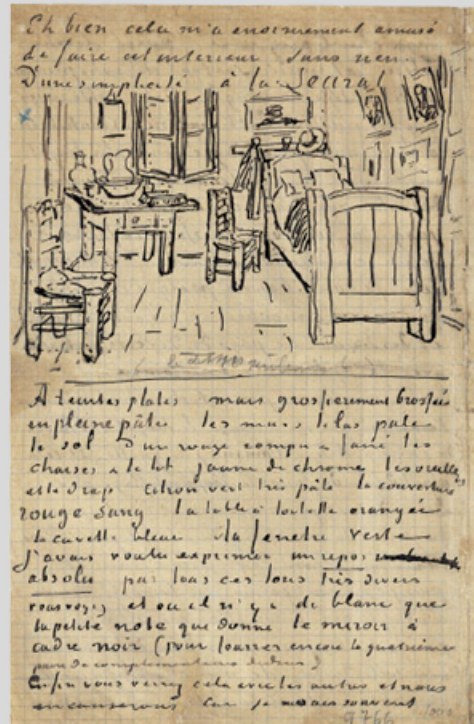 Eh bien cela m'a enormement amusé
de faire cet interieur sans rien
D'une simplicité à la Seurat
A teintes plates mais grossierement brossées
en pleine pâte les murs lilas pale
le sol d'un rouge rompu & fané les
chaises & le lit jaune de chrome les oreillers
et le drap citron vert très pâle la couverture
rouge sang la table à toilette orangée
la cuvette bleue la fenetre verte
J'avais voulu exprimer un repos
absolu par tous ces tons très divers
vous voyez et ou il n'y a de blanc que
la petite note que donne le miroir à
cadre noir (pour fourrer encore la quatrième
paire de complementaires dedans)
Enfin vous verrez cela avec les autres et nous
en causerons Car je ne sais souvent